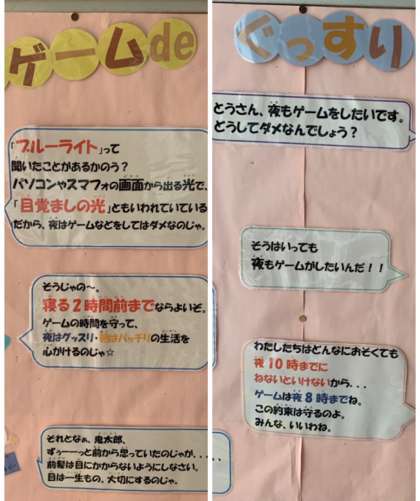 ゲームde
「ブルーライト」って
聞いたことがあるかのう？
パソコンやスマフォの画面から出る光で、
「目覚ましの光」ともいわれていている
だから、夜はゲームなどをしてはダメなのじゃ。
そうじゃの～。
寝る2時間前までならよいぞ。
ゲームの時間を守って、
夜はグッスリ・朝はバッチリの生活を
心がけるのじゃ☆
それとなぁ、鬼太郎、
ずぅーーっと前から思っていたのじゃが.....
前髪は目にかからないようにしなさい。
目は一生もの。大切にするのじゃ。
ぐっすり
とうさん、夜もゲームをしたいです。
どうしてダメなんでしょう？
そうはいっても
夜もゲームがしたいんだ！！
わたしたちはどんなにおそくても
夜10時までに
ねないといけないから...
ゲームは夜8時までね。
この約束は守るのよ。
みんな、いいわね。